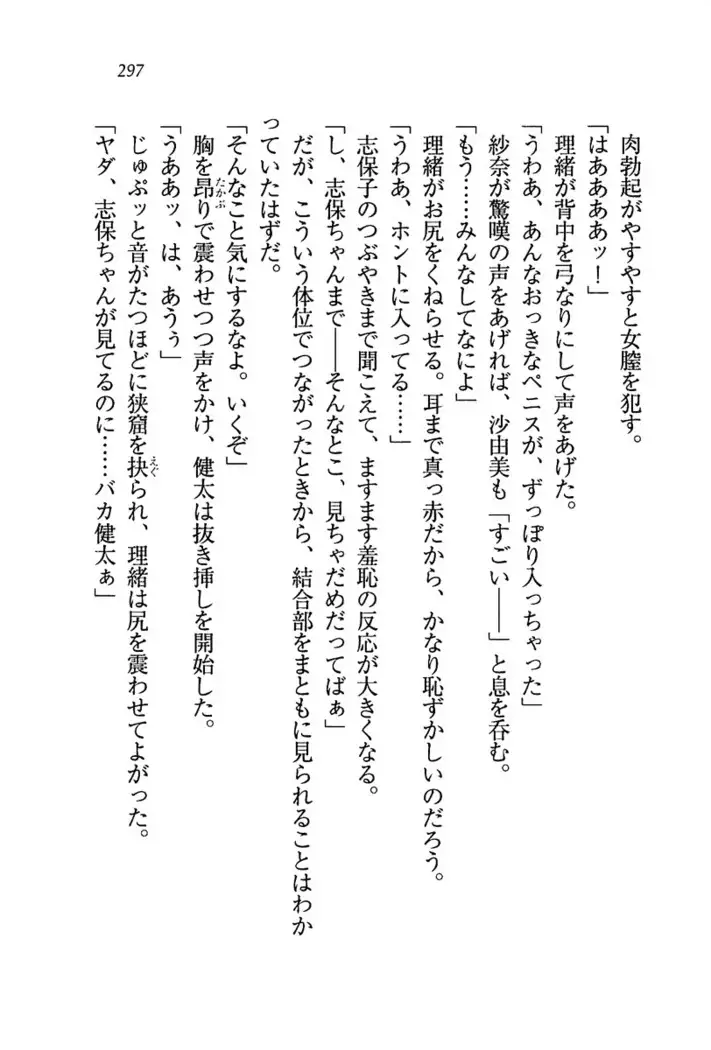 297
肉勃起がやすやすと女膣を犯す。
「はああああッ！」
理緒が背中を弓なりにして声をあげた。
「うわあ、あんなおっきなペニスが、ずっぽり入っちゃった」
紗奈が驚嘆の声をあげれば、沙由美も「すごい――」と息を呑む。
「もう……みんなしてなによ」
理緒がお尻をくねらせる。耳まで真っ赤だから、かなり恥ずかしいのだろう。
「うわあ、ホントに入ってる……」
志保子のつぶやきまで聞こえて、ますます羞恥の反応が大きくなる。
「し、志保ちゃんまで――そんなとこ、見ちゃだめだってばぁ」
だが、こういう体位でつながったときから、結合部をまともに見られることはわか
っていたはずだ。
「そんなこと気にするなよ。いくぞ」
胸を昂りで震わせつつ声をかけ、健太は抜き挿しを開始した。
「うああッ、は、あうぅ」
じゅぷッと音がたつほどに狭窟を抉られ、理緒は尻を震わせてよがった。
「ヤダ、志保ちゃんが見てるのに……バカ健太ぁ」